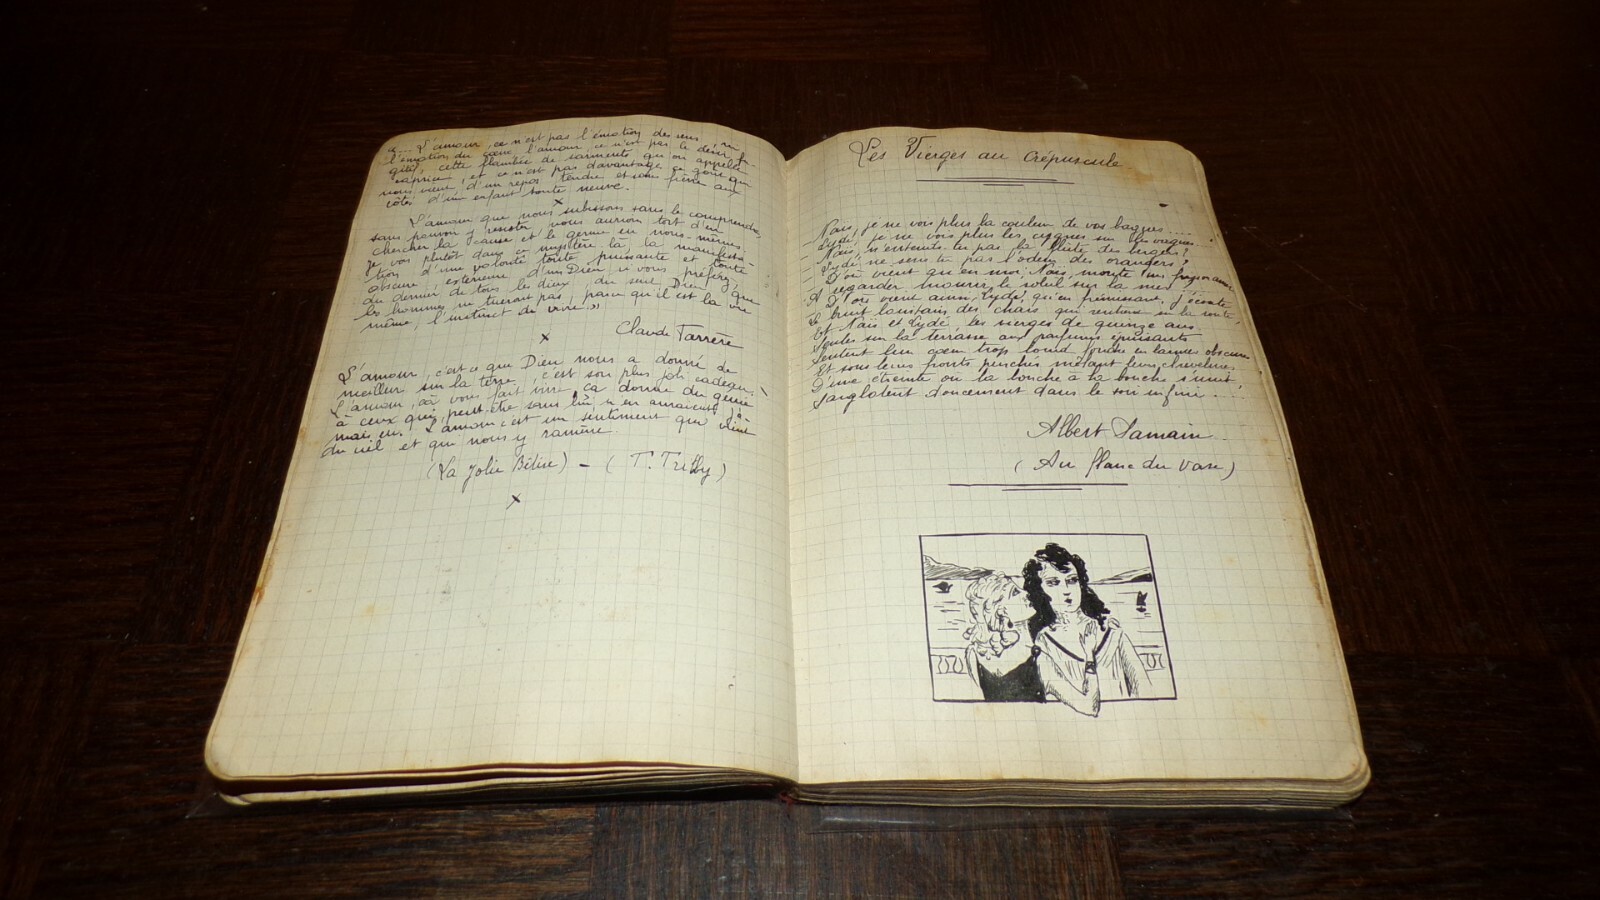 «... L'amour, ce n'est pas l'émotion des sens, ni
l'émotion du cœur, l'amour, ce n'est pas le désir fu-
gitif, cette flambée de sarments qu'on appelle
caprice, et ce n'est pas davantage ce goût qui
nous vient d'un repos tendre et sans fièvre aux
côtés d'un enfant toute neuve.
x
L'amour que nous subissons sans le comprendre,
sans pouvoir y résister, nous aurions tort d'en
chercher la cause et le germe en nous-mêmes.
je vois plutôt dans ce mystère là, la manifesta-
tion d'une volonté toute puissante et toute
obscure, extérieure, d'un Dieu, si vous préférez,
du dernier de tous les dieux, du seul Dieu que
les hommes ne tueront pas, parce qu'il est la vie
même, l'instinct de vivre.»
Claude Farrère
x
L'amour, c'est ce que Dieu nous a donné de
meilleur sur la terre, c'est son plus joli cadeau.
L'amour, ça vous fait vivre, ça donne du génie
à ceux qui, peut-être sans lui n'en auraient ja-
mais eu. L'amour c'est un sentiment qui vient
du ciel et qui nous y ramène.
(La Jolie Bêtise) - (T. Trilby)
x
Les Vierges au Crépuscule
- Naïs, je ne vois plus la couleur de vos bagues....
- Lydé, je ne vois plus les cygnes sur les vagues...
- Naïs, n'entends-tu pas la flûte des bergers?
- Lydé, ne sens-tu pas l'odeur des orangers?
- D'où vient qu'en moi, Naïs, monte un frisson amer
A regarder mourir le soleil sur la mer?
- D'où vient ainsi, Lydé, qu'en frémissant j'écoute
Le bruit lointain des chars qui rentrent sur la route?
Et Naïs et Lydé, les vierges de quinze ans
Seules sur la terrasse aux parfums épuisants
Sentent leur cœur trop lourd fondre en larmes obscures
Et sous leurs fronts penchés mêlant leurs chevelures
D'une étreinte où la bouche à la bouche s'unit
Sanglotent doucement dans le soir infini....
Albert Samain
(Au flanc du Vase)